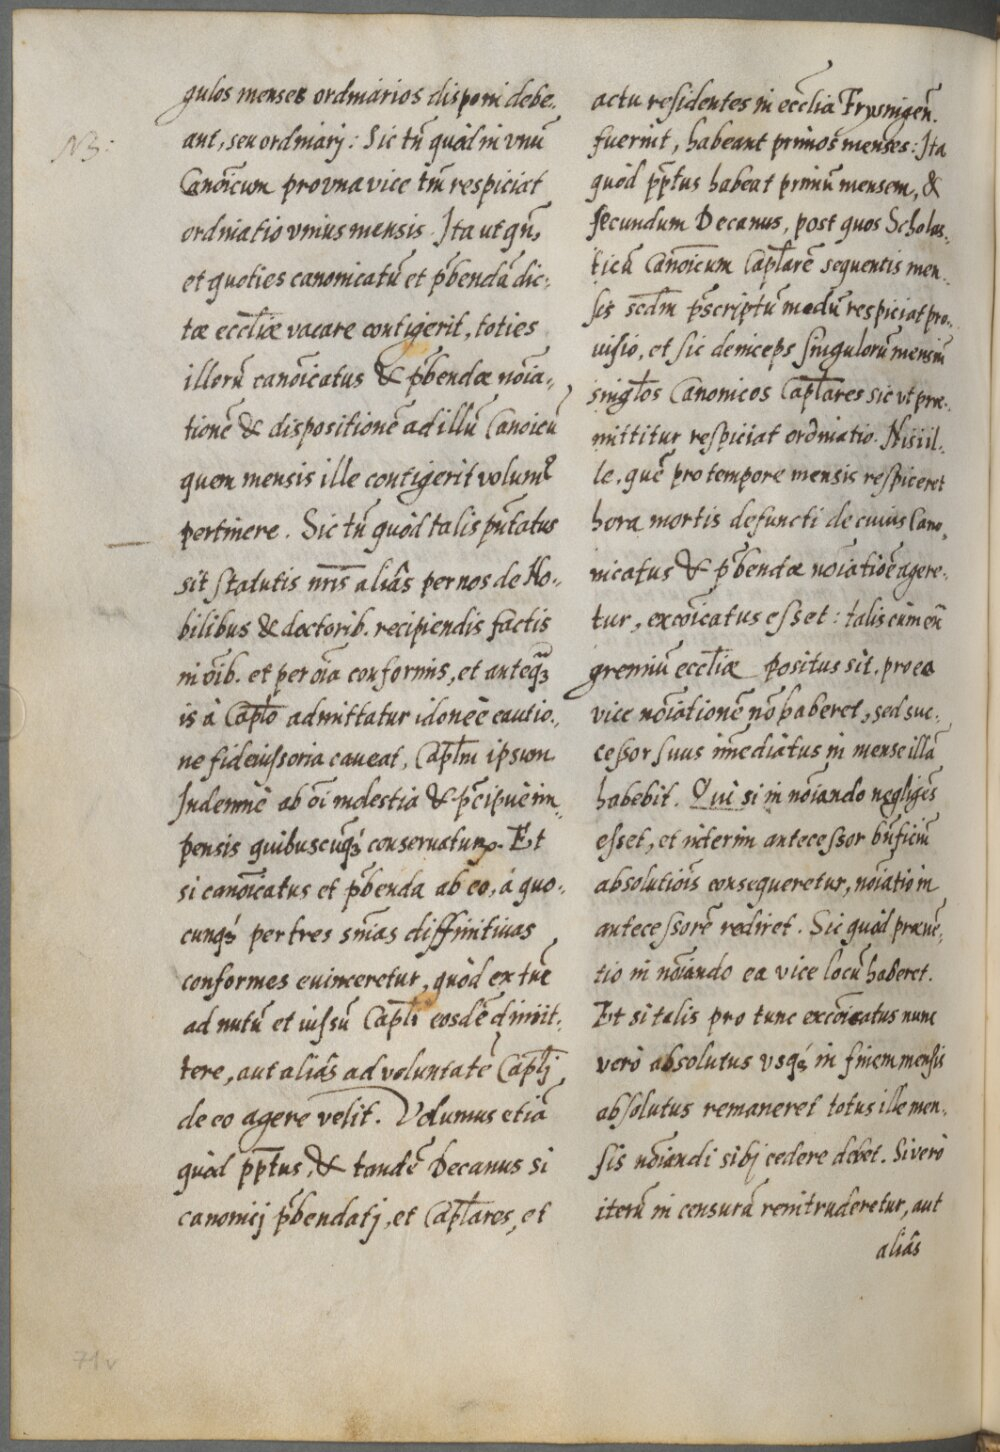 NB:
gulos menses ordinarios disponi debe-
ant, seu ordinarj: Sic tn̄ quòd in vnū
Canōicum pro vna vice tm̄ respiciat
ordinatio vnius mensis. Ita ut qn̄,
et quoties canonicatū et p̄bendā dic-
tæ eccl̄iæ vacare contigerit, toties
illorū canōicatus & p̄bendæ nōia-
tionē & dispositionē ad illū Canoicū
quem mensis ille contigerit volumꝰ
pertinere. Sic tn̄ quòd talis pn̄tatus
sit statutis nr̄is aliâs per nos de No-
bilibus & doctorib. recipiendis factis
in oīb. et per oīa conformis, et anteq̄ꝫ
is à Caplo admittatur idoneè cautio-
ne fideiussoria caueat, Caplm̄ ipsum
Indemnè ab oī molestia & p̄cipuè im-
pensis quibuscūqꝫ conseruaturꝫ. Et
si canōicatus et p̄benda ab eo, á quo-
cunqꝫ per tres sn̄ias diffinitiuas
conformes euinceretur, quòd ex tūc
ad nutū et iussū Capli eosdē dimit-
tere, aut aliâs ad voluntatē Caplj
de eo agere velit. Volumus etiā
quòd pp̄tus, & tandē Decanus si
canonicj p̄bendatj, et Caplares, et
actu residentes in eccl̄ia Frysingen̄.
fuerint, habeant primos menses: Ita
quòd pp̄tus habeat primū mensem, &
secundum Decanus, post quos Scholas-
ticū Canōicum Caplarē sequentis men-
sis scdm̄ p̄scriptū modū respiciat pro-
uisio, et sic deinceps singulorū mensiū
singlos Canonicos Caplares sic vt præ-
mittitur respiciat ordinatio. Nisi il-
le, quē pro tempore mensis respiceret
hora mortis defuncti de cuius Cano-
nicatus & p̄bendæ nōiatiōē agere-
tur, excōicatus esset: talis cùm en̄
gremiū eccl̄iæ positus sit, pro ea
vice nōiationē nō haberet, sed suc-
cessor suus īmediatus in mense illā
habebit. Qui si in nōiando negligēs
esset, et interim antecessor bn̄ficiū
absolutiōis consequeretur, nōiatio in
antecessorē rediret. Sic quòd præuē-
tio in nōiando ea vice locū haberet.
Et si talis pro tunc excōicatus nunc
verò absolutus vsqꝫ in finem mensis
absolutus remaneret totus ille men-
sis nōiandi sibj cedere debet. Si verò
iterū in censurā reintruderetur, aut
aliâs
71v